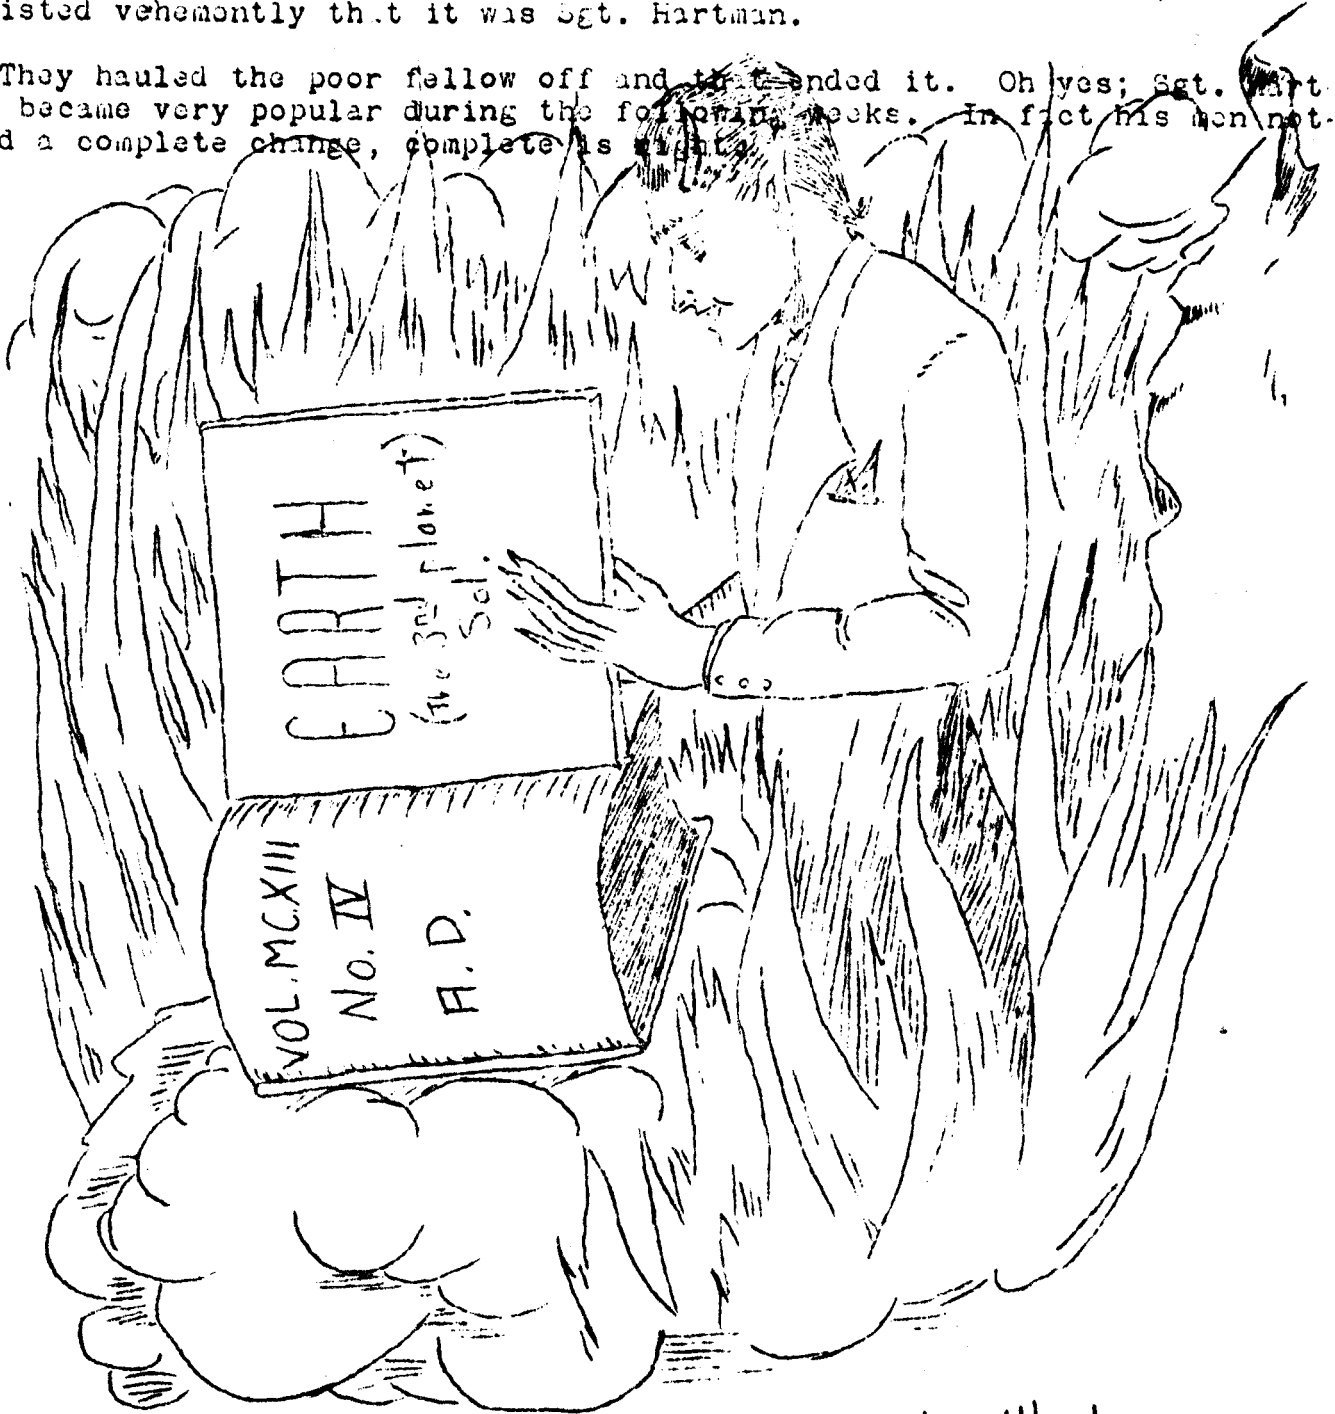 isted vehemently that it was Sgt. Hartman.
They hauled the poor fellow off and that ended it. Oh yes; Sgt. Hart
became very popular during the following weeks. In fact his men not-
d a complete change, complete is right.
EARTH
(The 3rd Planet)
Sol.
VOL. MCXIII
No. IV
A.D.